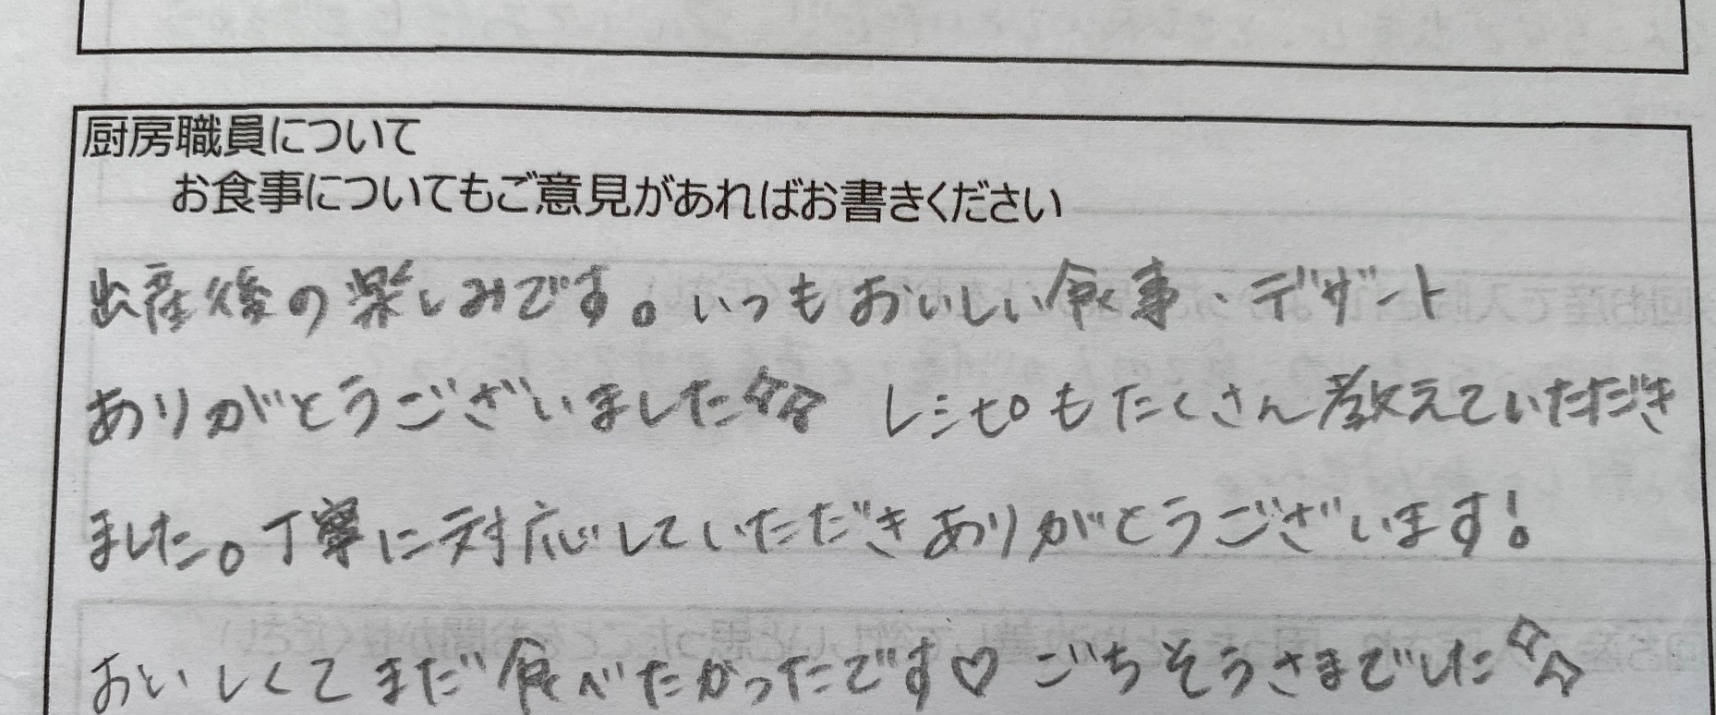 厨房職員について
お食事についてもご意見があればお書きください
出産後の楽しみです。いつもおいしい食事、デザート
ありがとうございました☆☆ レシピもたくさん教えていただき
ました。丁寧に対応していただきありがとうございます!
おいしくてまだ食べたかったです♡ ごちそうさまでした☆☆